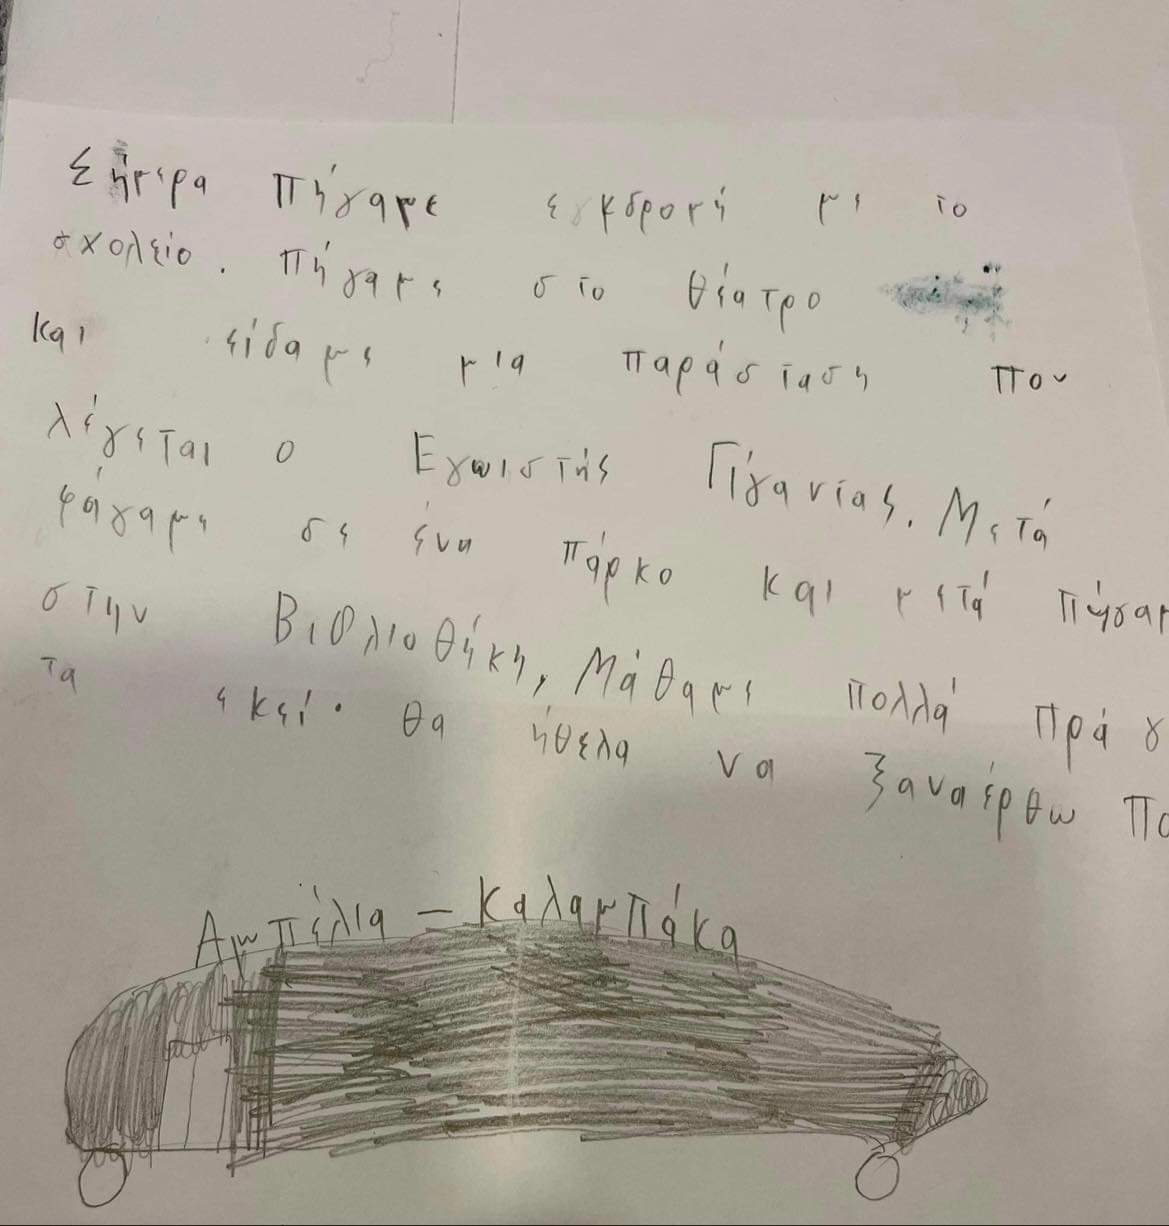 Σήμερα πήγαμε εγκδρομή με το
σχολείο. πήγαμε στο θέατρο
και είδαμε μια παράσταση που
λέγεται ο Εγωιστής Γίγαντας. Μετά
φάγαμε σε ένα πάρκο και μετά πήγαμ
στην Βιβλιοθήκη, Μάθαμε πολλά πράγ
τα εκεί. θα ήθελα να ξαναέρθω πο
Αμπέλια - Καλαμπάκα